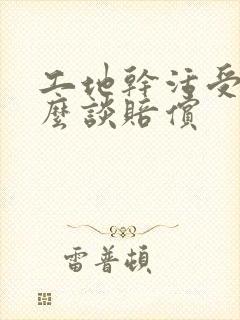 工地幹活受
麼談賠償
雷普頓